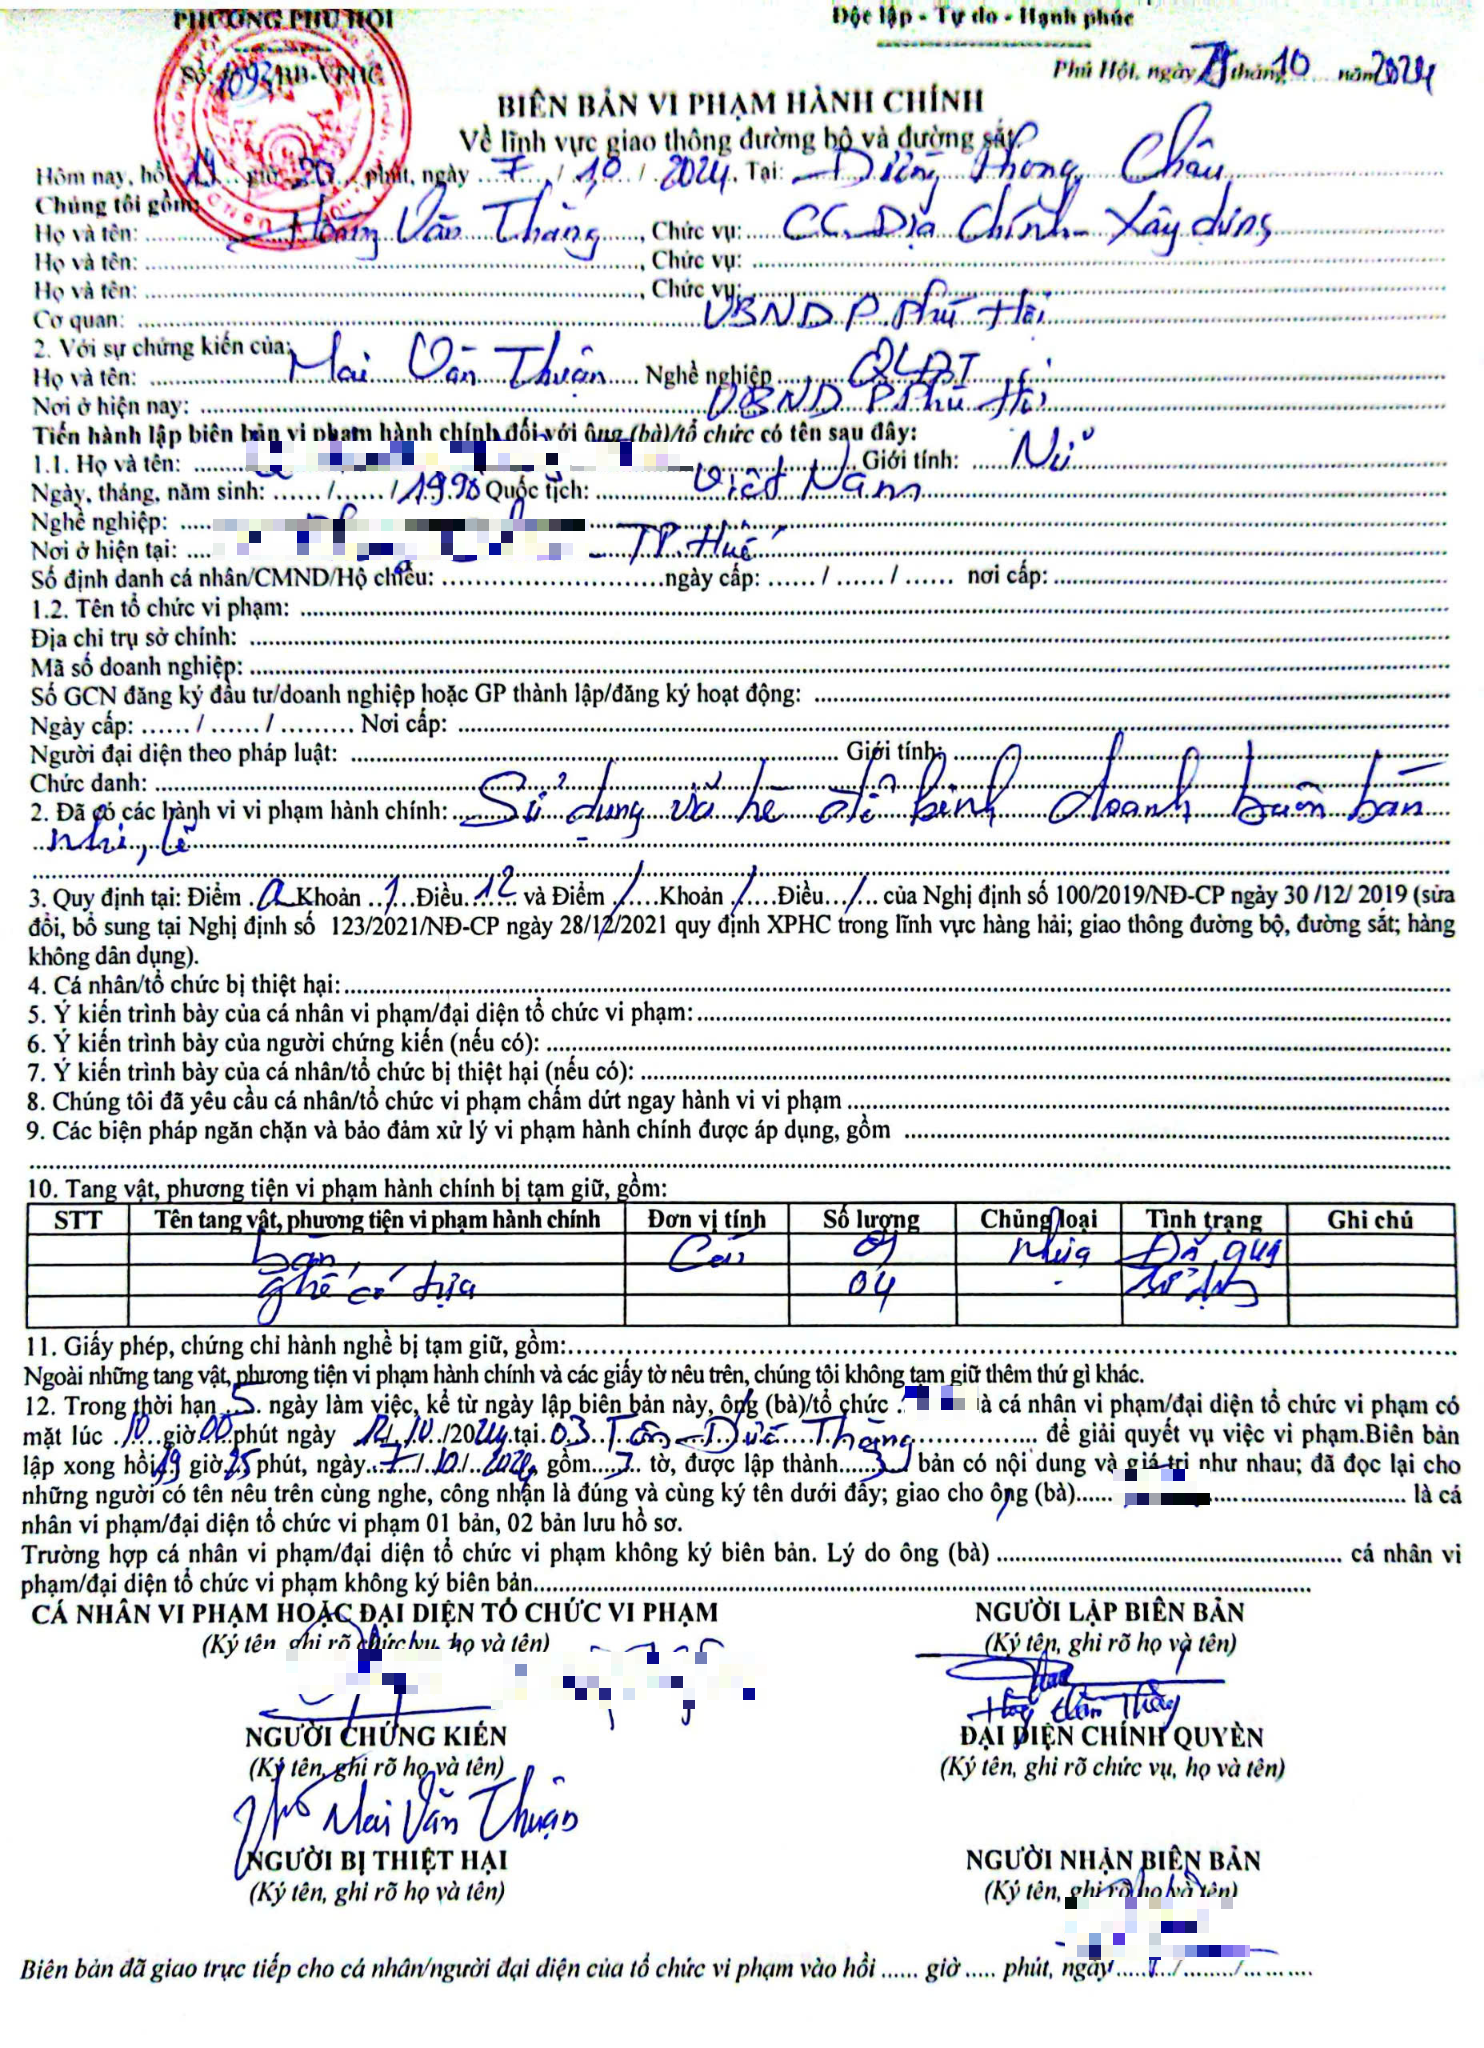 PHƯỜNG PHÚ HỘI
Độc lập - Tự do - Hạnh phúc
Số: 1093/BB-VPHC
Phú Hội, ngày 7 tháng 10 năm 2024
BIÊN BẢN VI PHẠM HÀNH CHÍNH
Về lĩnh vực giao thông đường bộ và đường sắt
Hôm nay, hồi 19 giờ 20 phút, ngày 7 / 10 / 2024. Tại: Đường Phong Châu
Chúng tôi gồm:
Họ và tên: Hoàng Văn Thắng, Chức vụ: CC. Địa Chính - Xây dựng
Họ và tên: , Chức vụ:
Họ và tên: , Chức vụ:
Cơ quan: UBND P. Phú Hội
2. Với sự chứng kiến của:
Họ và tên: Mai Văn Thuận Nghề nghiệp QLĐT
Nơi ở hiện nay: UBND P. Phú Hội
Tiến hành lập biên bản vi phạm hành chính đối với ông (bà)/tổ chức có tên sau đây:
1.1. Họ và tên: Giới tính: Nữ
Ngày, tháng, năm sinh: ...... /...... /1990 Quốc tịch: Việt Nam
Nghề nghiệp:
Nơi ở hiện tại: - TP. Huế
Số định danh cá nhân/CMND/Hộ chiếu: ngày cấp: ...... / ...... / ...... nơi cấp:
1.2. Tên tổ chức vi phạm:
Địa chỉ trụ sở chính:
Mã số doanh nghiệp:
Số GCN đăng ký đầu tư/doanh nghiệp hoặc GP thành lập/đăng ký hoạt động:
Ngày cấp: ...... / ...... / ......... Nơi cấp:
Người đại diện theo pháp luật: Giới tính:
Chức danh:
2. Đã có các hành vi vi phạm hành chính: Sử dụng vỉa hè để kinh doanh buôn bán
nhỏ, lẻ
3. Quy định tại: Điểm a Khoản 1 Điều 12 và Điểm / Khoản / Điều / của Nghị định số 100/2019/NĐ-CP ngày 30 /12/ 2019 (sửa
đổi, bổ sung tại Nghị định số 123/2021/NĐ-CP ngày 28/12/2021 quy định XPHC trong lĩnh vực hàng hải; giao thông đường bộ, đường sắt; hàng
không dân dụng).
4. Cá nhân/tổ chức bị thiệt hại:
5. Ý kiến trình bày của cá nhân vi phạm/đại diện tổ chức vi phạm:
6. Ý kiến trình bày của người chứng kiến (nếu có):
7. Ý kiến trình bày của cá nhân/tổ chức bị thiệt hại (nếu có):
8. Chúng tôi đã yêu cầu cá nhân/tổ chức vi phạm chấm dứt ngay hành vi vi phạm
9. Các biện pháp ngăn chặn và bảo đảm xử lý vi phạm hành chính được áp dụng, gồm
10. Tang vật, phương tiện vi phạm hành chính bị tạm giữ, gồm:
STT Tên tang vật, phương tiện vi phạm hành chính Đơn vị tính Số lượng Chủng loại Tình trạng Ghi chú
bàn Cái 01 nhựa Đã qua
ghế có tựa 04 sử dụng
11. Giấy phép, chứng chỉ hành nghề bị tạm giữ, gồm:
Ngoài những tang vật, phương tiện vi phạm hành chính và các giấy tờ nêu trên, chúng tôi không tạm giữ thêm thứ gì khác.
12. Trong thời hạn 5 ngày làm việc, kể từ ngày lập biên bản này, ông (bà)/tổ chức là cá nhân vi phạm/đại diện tổ chức vi phạm có
mặt lúc 10 giờ 00 phút ngày 12/10/2024 tại 03 Tôn Đức Thắng để giải quyết vụ việc vi phạm.Biên bản
lập xong hồi 19 giờ 25 phút, ngày 7 / 10 / 2024, gồm 3 tờ, được lập thành 3 bản có nội dung và giá trị như nhau; đã đọc lại cho
những người có tên nêu trên cùng nghe, công nhận là đúng và cùng ký tên dưới đây; giao cho ông (bà) là cá
nhân vi phạm/đại diện tổ chức vi phạm 01 bản, 02 bản lưu hồ sơ.
Trường hợp cá nhân vi phạm/đại diện tổ chức vi phạm không ký biên bản. Lý do ông (bà) cá nhân vi
phạm/đại diện tổ chức vi phạm không ký biên bản
CÁ NHÂN VI PHẠM HOẶC ĐẠI DIỆN TỔ CHỨC VI PHẠM NGƯỜI LẬP BIÊN BẢN
(Ký tên, ghi rõ chức vụ, họ và tên) (Ký tên, ghi rõ họ và tên)
Hoàng Văn Thắng
NGƯỜI CHỨNG KIẾN ĐẠI DIỆN CHÍNH QUYỀN
(Ký tên, ghi rõ họ và tên) (Ký tên, ghi rõ chức vụ, họ và tên)
Mai Văn Thuận
NGƯỜI BỊ THIỆT HẠI NGƯỜI NHẬN BIÊN BẢN
(Ký tên, ghi rõ họ và tên) (Ký tên, ghi rõ họ và tên)
Biên bản đã giao trực tiếp cho cá nhân/người đại diện của tổ chức vi phạm vào hồi ...... giờ ..... phút, ngày ...../......../...........